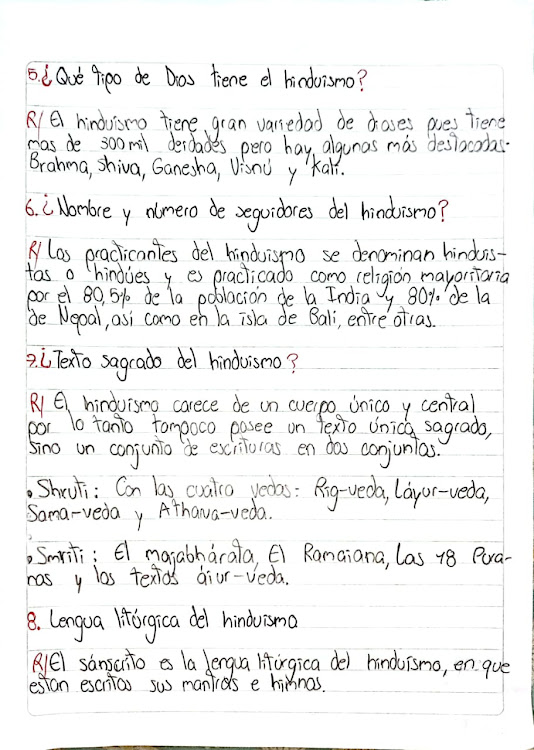 5.¿Qué tipo de Dios tiene el hinduismo?
R/ El hinduismo tiene gran variedad de dioses pues tiene
mas de 300 mil deidades pero hay algunas más destacadas.
Brahma, Shiva, Ganesha, Visnú y Kali.
6.¿Nombre y número de seguidores del hinduismo?
R/ Los practicantes del hinduismo se denominan hinduis-
tas o hindúes y es practicado como religión mayoritaria
por el 80,5% de la población de la India y 80% de la
de Nepal, así como en la isla de Bali, entre otras.
7.¿Texto sagrado del hinduismo?
R/ El hinduismo carece de un cuerpo único y central
por lo tanto tampoco posee un texto único sagrado,
sino un conjunto de escrituras en dos conjuntos.
• Shruti: Con las cuatro vedas: Rig-veda, Láyur-veda,
Sama-veda y Atharva-veda.
• Smriti: El majabhárata, El Ramaiana, Las 18 Pura-
nas y los textos áiur-veda.
8. Lengua litúrgica del hinduismo
R/El sánscrito es la lengua litúrgica del hinduísmo, en que
estan escritos sus mantras e himnos.